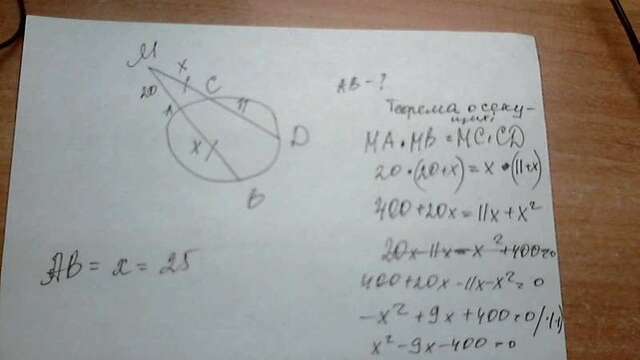 M
x
20
C
A
11
D
x
B
AB = x = 25
AB - ?
Теорема о секу-
щих:
MA · MB = MC · CD
20 · (20+x) = x · (11+x)
400 + 20x = 11x + x²
20x - 11x - x² + 400 = 0
400 + 20x - 11x - x² = 0
-x² + 9x + 400 = 0 /·(-1)
x² - 9x - 400 = 0